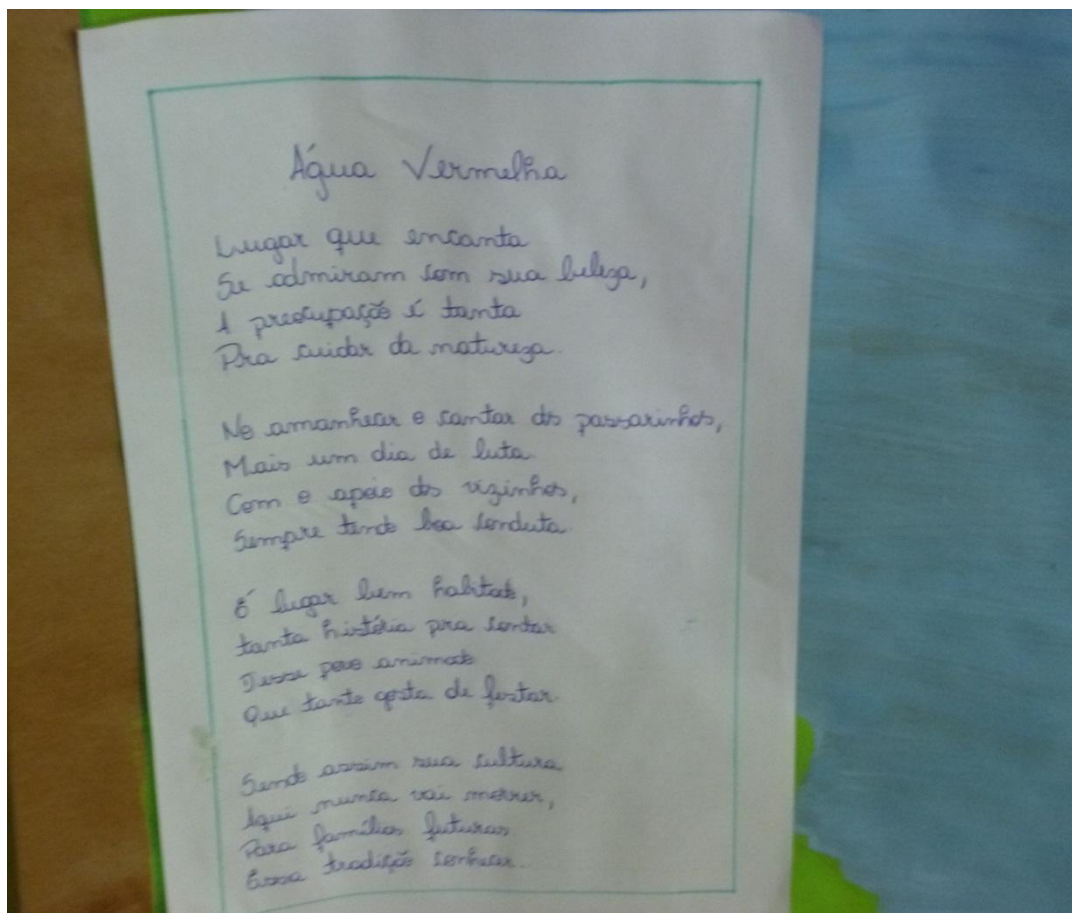 Água Vermelha
Lugar que encanta
Se admiram com sua beleza,
A preocupação é tanta
Pra cuidar da natureza.
No amanhecer o cantar dos passarinhos,
Mais um dia de luta.
Com o apoio dos vizinhos,
Sempre tendo boa conduta.
É lugar bem habitado,
tanta história pra contar
Desse povo animado
Que tanto gosta de festar.
Sendo assim sua cultura
Aqui nunca vai morrer,
Para famílias futuras.
Essa tradição conhecer.